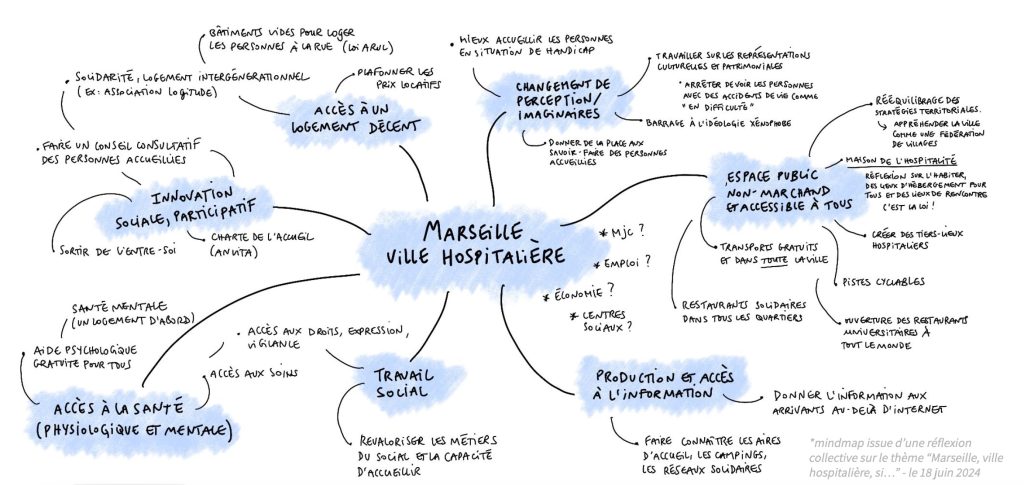 BÂTIMENTS VIDES POUR LOGER
LES PERSONNES À LA RUE (LOI ARUL)
SOLIDARITÉ, LOGEMENT INTERGÉNÉRATIONNEL
(EX: ASSOCIATION LOGITUDE)
PLAFONNER LES
PRIX LOCATIFS
ACCÈS À UN
LOGEMENT DÉCENT
FAIRE UN CONSEIL CONSULTATIF
DES PERSONNES ACCUEILLIES
INNOVATION
SOCIALE, PARTICIPATIF
SORTIR DE L'ENTRE-SOI
CHARTE DE L'ACCUEIL
(ANVITA)
MIEUX ACCUEILLIR LES PERSONNES
EN SITUATION DE HANDICAP
CHANGEMENT DE
PERCEPTION/
IMAGINAIRES
TRAVAILLER SUR LES REPRÉSENTATIONS
CULTURELLES ET PATRIMONIALES
* ARRÊTER DE VOIR LES PERSONNES
AVEC DES ACCIDENTS DE VIE COMME
"EN DIFFICULTÉ"
BARRAGE À L'IDÉOLOGIE XÉNOPHOBE
DONNER DE LA PLACE AUX
SAVOIR-FAIRE DES PERSONNES
ACCUEILLIES
ESPACE PUBLIC
NON-MARCHAND
ET ACCESSIBLE À TOUS
RÉÉQUILIBRAGE DES
STRATÉGIES TERRITORIALES.
↳ APPRÉHENDER LA VILLE
COMME UNE FÉDÉRATION
DE VILLAGES
MAISON DE L'HOSPITALITÉ
RÉFLEXION SUR L'HABITER,
DES LIEUX D'HÉBERGEMENT POUR
TOUS ET DES LIEUX DE RENCONTRE
C'EST LA LOI !
CRÉER DES TIERS-LIEUX
HOSPITALIERS
TRANSPORTS GRATUITS
ET DANS TOUTE LA VILLE
PISTES CYCLABLES
RESTAURANTS SOLIDAIRES
DANS TOUS LES QUARTIERS
OUVERTURE DES RESTAURANTS
UNIVERSITAIRES À
TOUT LE MONDE
MARSEILLE
VILLE HOSPITALIÈRE
* MJC ?
* EMPLOI ?
* ÉCONOMIE ?
* CENTRES
SOCIAUX ?
SANTÉ MENTALE
(UN LOGEMENT D'ABORD)
AIDE PSYCHOLOGIQUE
GRATUITE POUR TOUS
ACCÈS À LA SANTÉ
(PHYSIOLOGIQUE ET MENTALE)
ACCÈS AUX SOINS
ACCÈS AUX DROITS, EXPRESSION,
VIGILANCE
TRAVAIL
SOCIAL
REVALORISER LES MÉTIERS
DU SOCIAL ET LA CAPACITÉ
D'ACCUEILLIR
PRODUCTION ET ACCÈS
À L'INFORMATION
DONNER L'INFORMATION AUX
ARRIVANTS AU-DELÀ D'INTERNET
FAIRE CONNAÎTRE LES AIRES
D'ACCUEIL, LES CAMPINGS,
LES RÉSEAUX SOLIDAIRES
*mindmap issue d'une réflexion
collective sur le thème "Marseille, ville
hospitalière, si..." - le 18 juin 2024